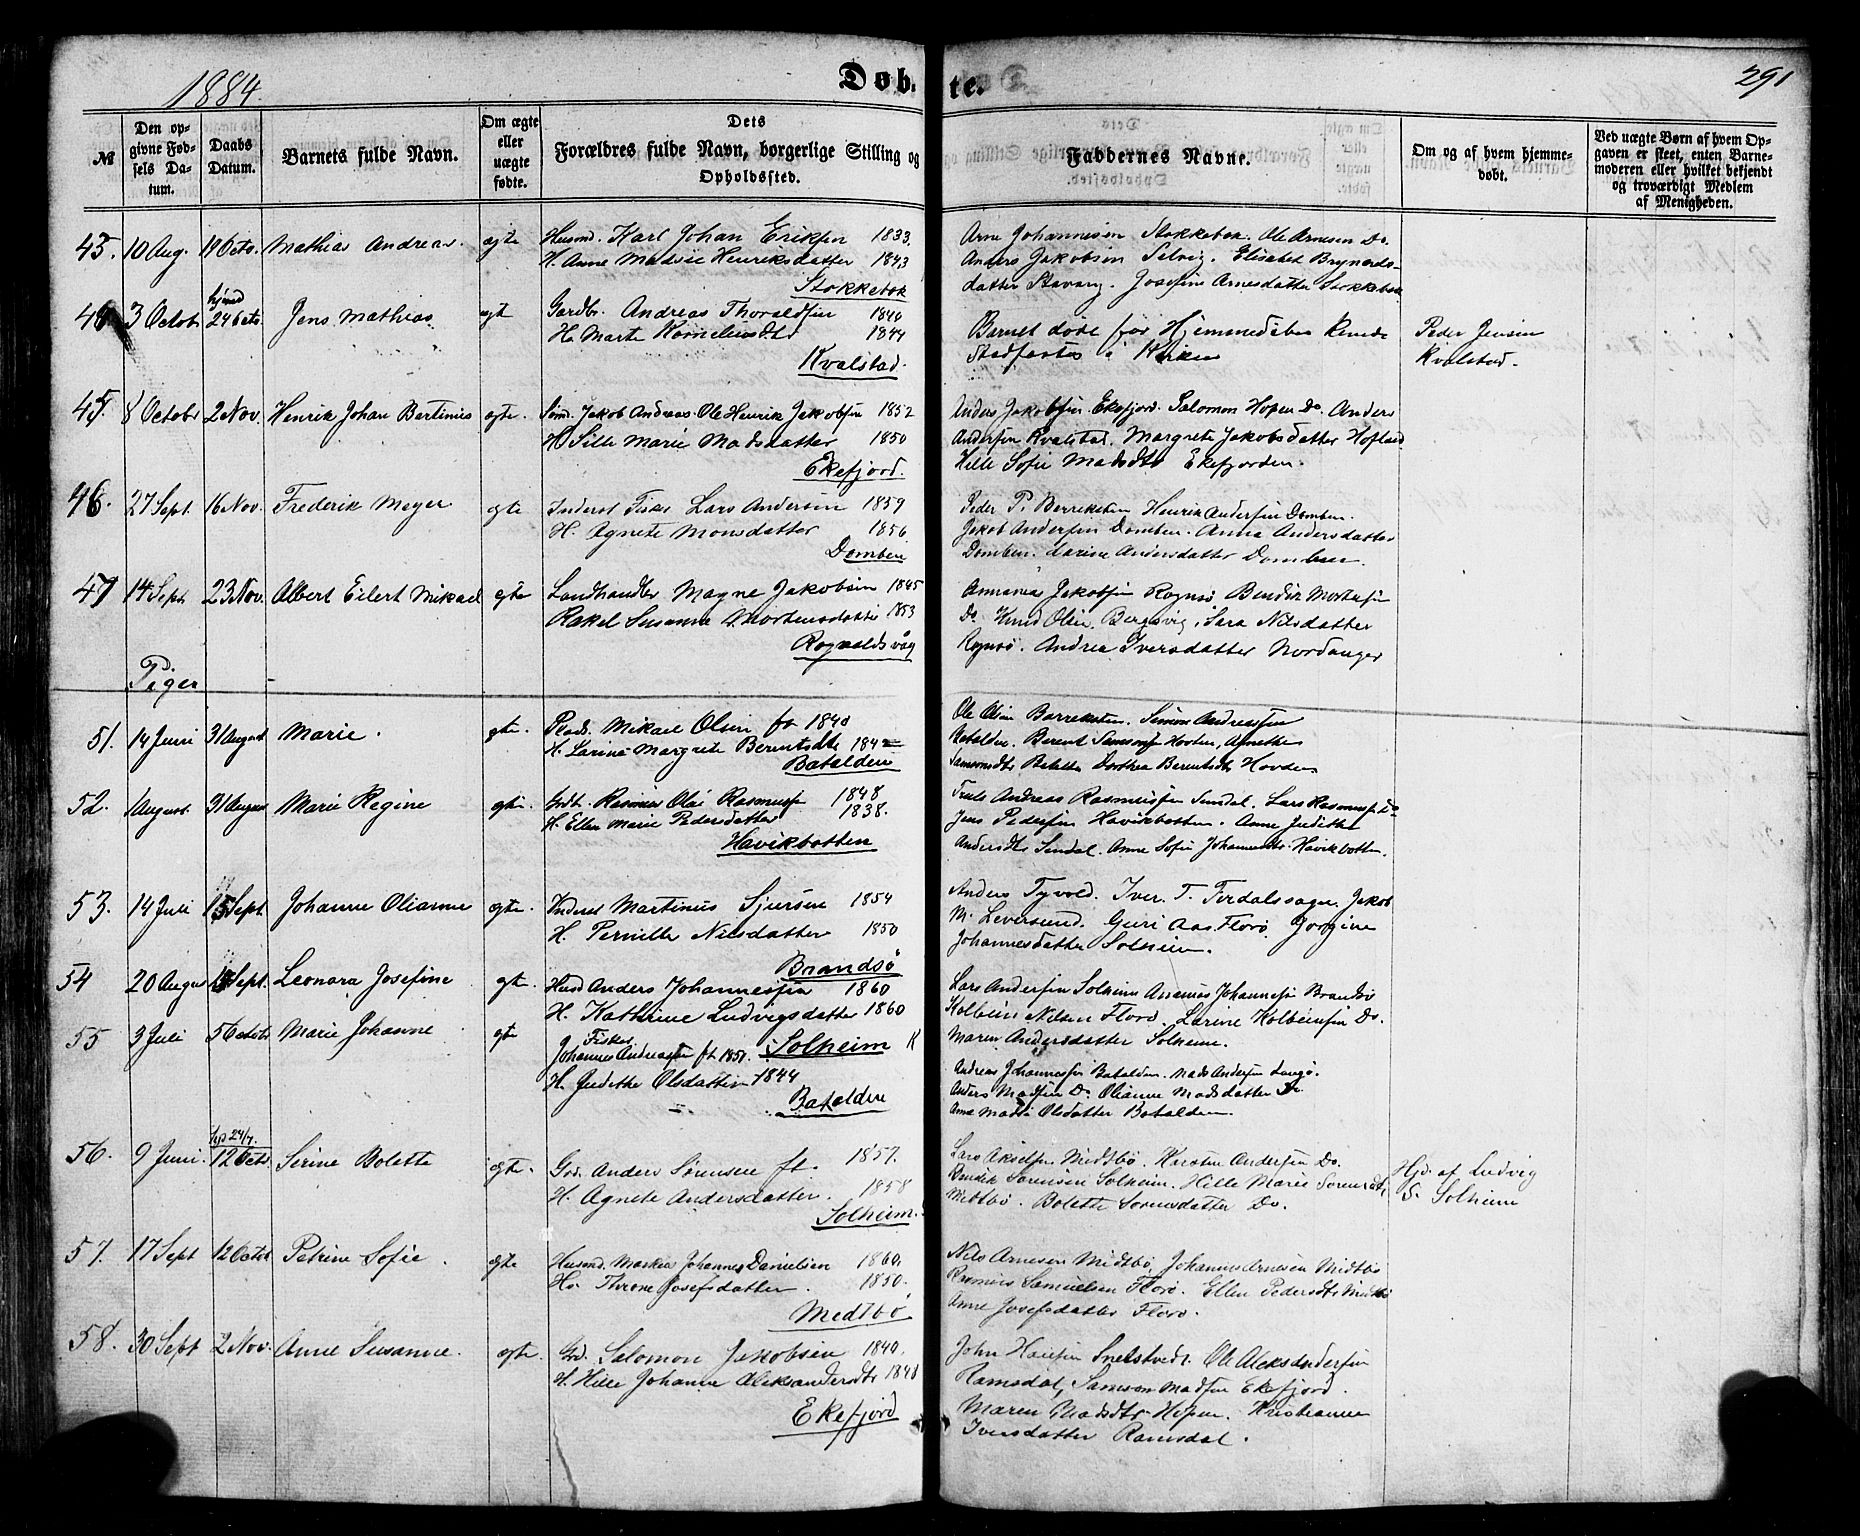 1884.
Døb-
te.
291
№
Den op-
givne Fød-
sels Da-
tum.
Daabs
Datum.
Barnets fulde Navn.
Om ægte
eller
uægte
fødte.
Dets
Forældres fulde Navn, borgerlige Stilling og
Opholdssted.
Faddernes Navne.
Om og af hvem hjemme-
døbt.
Ved uægte Børn af hvem Op-
gaven er skeet, enten Barne-
moderen eller hvilket bekjendt
og troværdigt Medlem
af Menigheden.
43. 10 Aug. Octo. Mathias Andreas. ægte Husmd. Karl Johan Eriksen 1833.
H. Anne Madsie Henriksdatter 1843
Stokkebøk
Arne Johannesen Stokkebøk. Ole Arnesen Do.
Anders Jakobsen Selvig. Elisabet Brynilds-
datter Stavang. Josefine Arnesdatter Stokkebøk
3 Octob hjmd 24 Octo. Jens Mathias ægt Gardbr. Andreas Thoraldsen 1840
H. Marte Korneliusdtr 1844
Kvalstad.
Barnet døde før Hjemmedaaben kunde
Stadfæstes i Kirken
Peder Jensen
Kvalstad.
45. 8 Octobr 2 Nov. Henrik Johan Bertinius ægte. Jakob Andreas Ole Henrik Jakobsen 1852
H. Sille Marie Madsdatter 1850
Ekefjord.
Anders Jakobsen Ekefjord. Salomon Hopen Do. Anders
Andersen Kvalstad. Margrete Jakobsdatter Hofland
Hille Sofie Madsdtr Ekefjorden.
46. 27 Sept. 16 Nov. Frederik Meyer ægte Inderst Fisker Lars Andersen 1859
H. Agnete Monsdatter 1856
Domben
Peder P. Barreksten Henrik Andersen Domben.
Jakob Andersen Domben. Anna Andersdatter
Domben. Larine Andersdatter Domben.
47 14 Sept 23 Nov. Albert Eilert Mikael ægte Landhandler Magne Jakobsen 1845
Rakel Susanna Mortensdatter 1853
Rognaldsvåg
Ananias Jakobsen Rognsø Bendik Mortensen
Do. Knud Olsen Bergsvig, Sara Nilsdatter
Rognsø. Andrea Iversdatter Nordanger
Piger
51. 14 Juni 31 August Marie. ægte. Mikael Olsen ft 1840
H. Larine Margrete Berentsdtr 1842
Batalden
Ole Olsen Barreksten. Simon Andreassen
Batalden. Berent Samsons Hovden, Agnethe
Samsonsdtr Batalden Dorthea Berentsdtr Hovden
52. 1 August 31 August Marie Regine ægte. Grdb. Rasmus Olai Rasmussen 1848
H. Ellen Marie Pedersdatter 1838.
Havikbotten
Truls Andreas Rasmussen Sundal. Lars Rasmussen Do
Jens Pedersen Havikbotten. Anne Judithe
Andersdtr Sundal. Anne Sofie Johannesdtr. Havikbotten.
53. 14 Juli 15 Sept. Johanne Olianne ægte. Inderst Martinus Sjursen 1854
H. Pernille Nilsdatter 1850
Brandsø
Anders Tyvold. Iver T. Førdalssagen. Jakob
M. Leversund. Guri Aas. Florø. Jorgine
Johannesdatter Solheim.
54 20 August Sept. Leonora Josefine ægte. Husmd Anders Johannessen 1860
H. Kathrine Ludvigsdatter 1860
Solheim
Lars Andersen Solheim Ananias Johannesen Brandsø
Kolbein Nilsen Florø. Larine Kolbeinsen Do.
Maren Andersdatter Solheim.
55 3 Juli 5 Octobr Marie Johanne ægte Fisker
Johannes Andreassen ft 1851.
H. Judithe Olsdatter 1844
Batalden
Andreas Johannessen Batalden. Mads Andersen Langø.
Anders Madsen Do. Olianne Madsdatter Do
Ane Madsie Olsdatter Batalden.
56. 9 Juni. hjd 24/7. 12 Octr. Serine Bolette ægte. Grd. Anders Sørensen ft. 1857.
H. Agnete Andersdatter. 1858
Solheim.
Lars Akselsen Midtbø. Karsten Andersen Do.
Bendik Sørensen Solheim. Hille Marie Sørensdt,
Midtbø. Bolette Sørensdatter Do.
Hjd. af Ludvig
S. Solheim
57. 17 Sept 12 Octob Petrine Sofie. ægte Husmd. Markus Johannes Danielsen 1860
H. Throne Josefsdatter. 1850.
Medtbø
Nils Arnesen Midtbø, Johannes Arnesen Midtbø
Rasmus Samuelsen Florø. Ellen Pedersdtr Midtbø
Anne Josefsdatter Florø.
58. 30 Sept 2 Nov. Anne Susanne. ægte. Grd. Salomon Jakobsen 1840.
H. Hille Johanne Aleksandersdtr 1848
Ekefjord
John Hansen Snelstvedt. Ole Aleksandersen
Ramsdal, Samson Madsen Ekefjord.
Maren Madsdtr Hopen. Kristianne
Iversdatter Ramsdal.